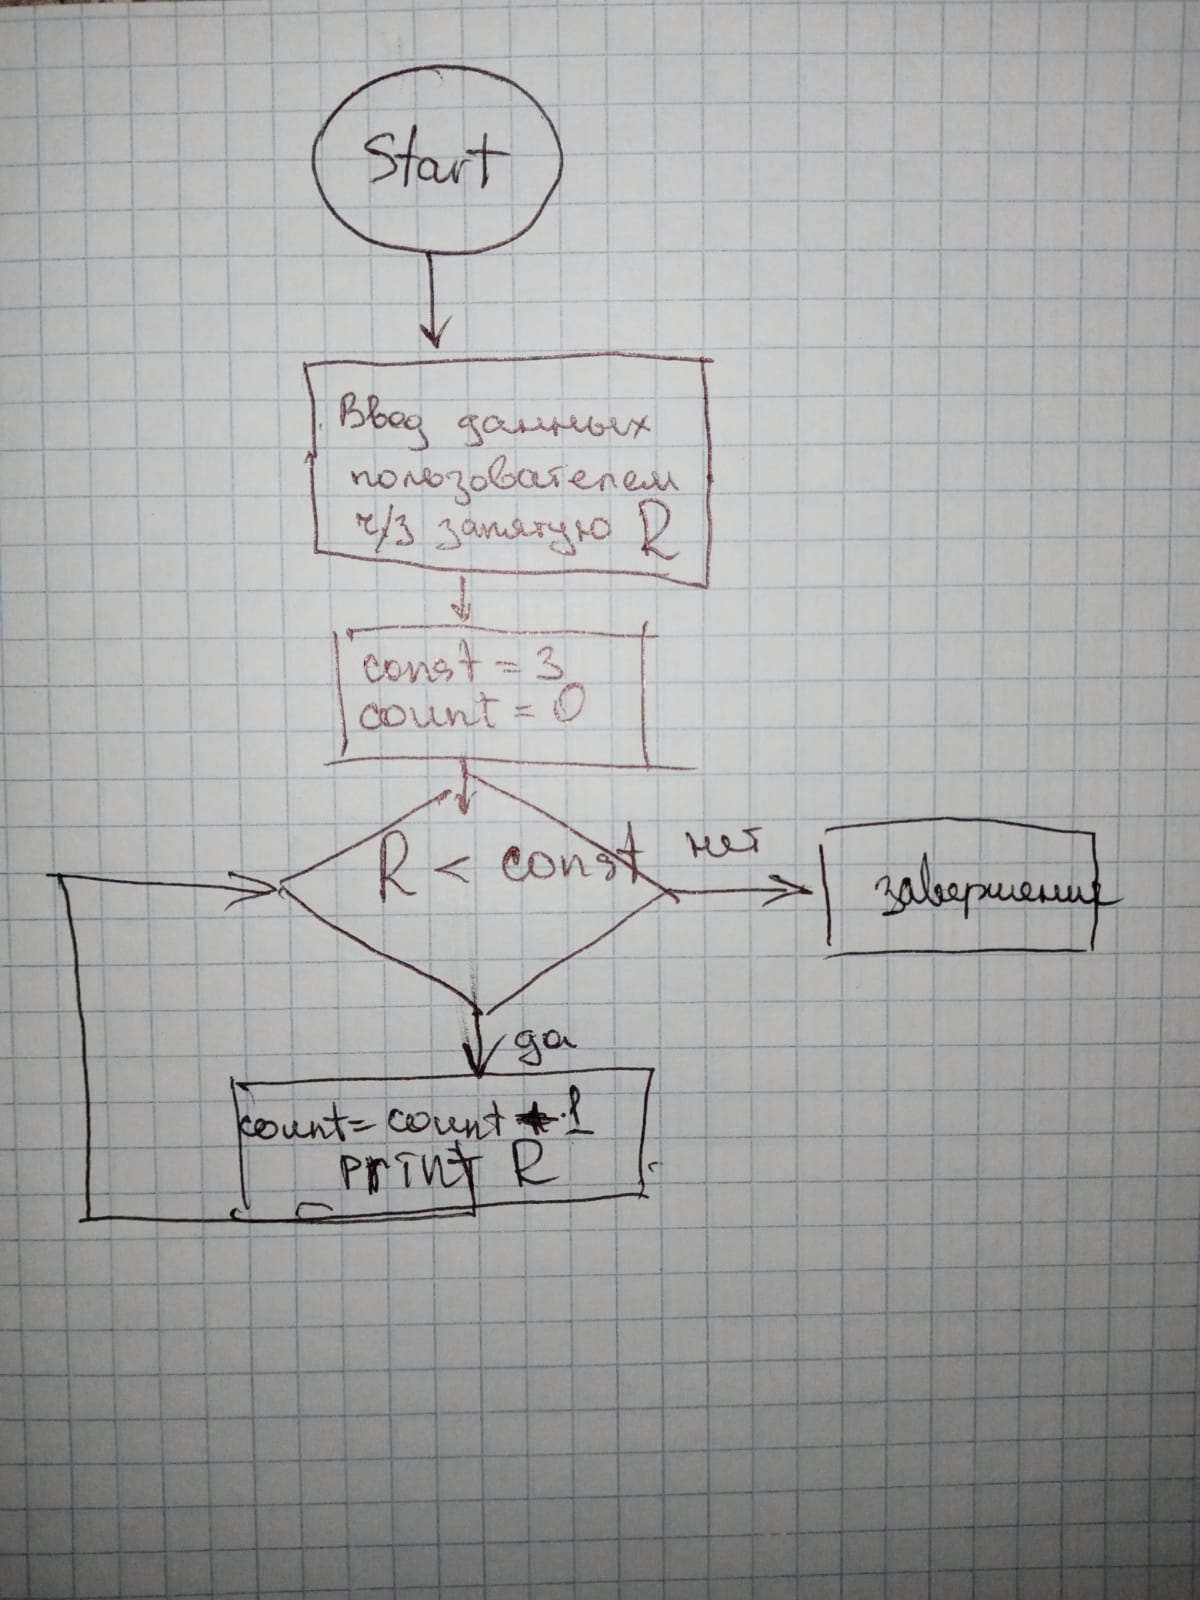 Start
Ввод данных
пользователем
ч/з запятую R
const = 3
count = 0
R < const
нет
завершение
да
count = count + 1
print R